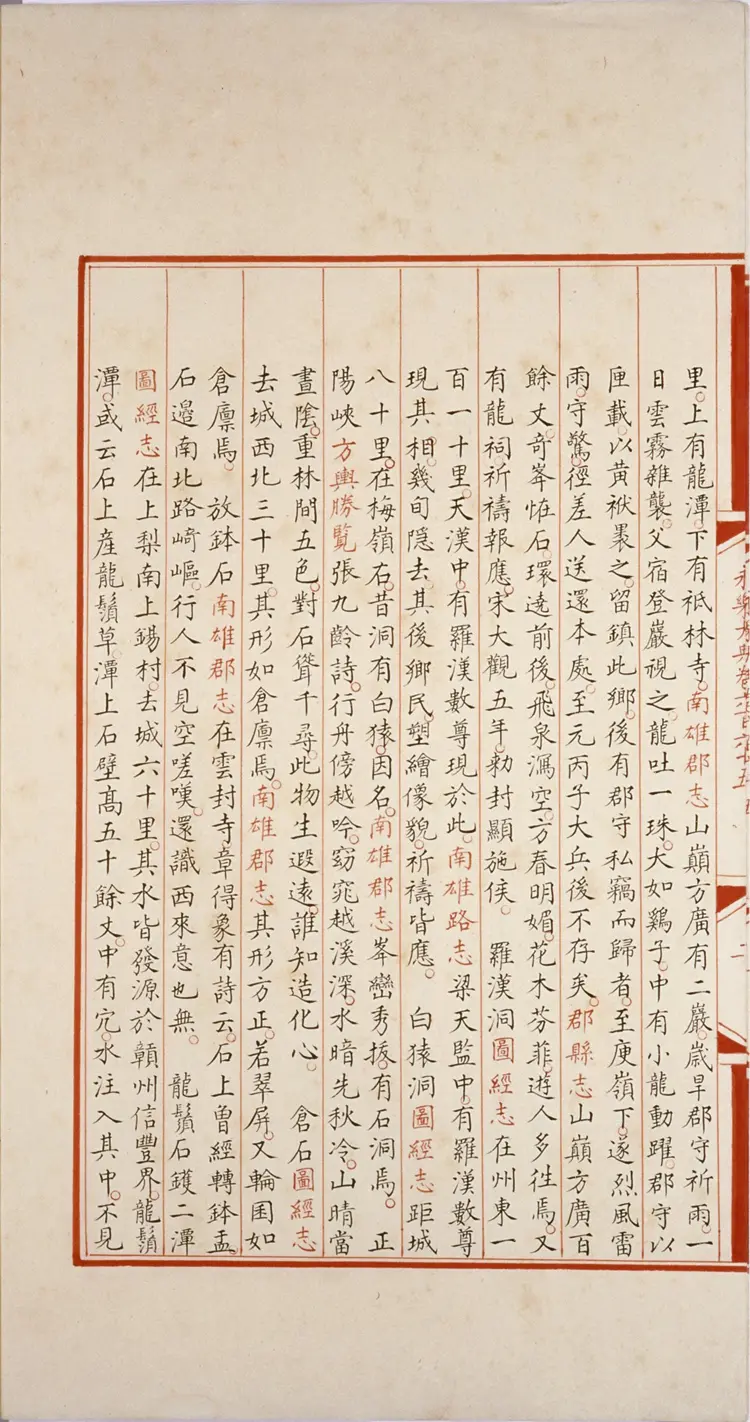 里上有龍潭下有祗林寺南雄郡志山巔方廣有二巖歲旱郡守祈雨一
日雲霧雜襲父宿登巖視之龍吐一珠大如鷄子中有小龍動躍郡守以
匣載以黄袱裹之留鎮此鄉後有郡守私竊而歸者至庾嶺下遂烈風雷
雨守驚徑差人送還本處至元丙子大兵後不存矣郡縣志山巔方廣百
餘丈奇峯恠石環遶前後飛泉瀉空方春明媚花木芬菲遊人多徃焉又
有龍祠祈禱報應宋大觀五年勑封顯施侯 羅漢洞圖經志在州東一
百一十里天漢中有羅漢數尊現於此南雄路志梁天監中有羅漢數尊
現其相幾旬隱去其後鄉民塑繪像貌祈禱皆應 白猿洞圖經志距城
八十里在梅嶺右昔洞有白猿因名南雄郡志峯巒秀拔有石洞焉 正
陽峽方輿勝覽張九齡詩行舟傍越吟窈窕越溪深水暗先秋冷山晴當
晝陰重林間五色對石聳千尋此物生遐遠誰知造化心 倉石圖經志
去城西北三十里其形如倉廪焉南雄郡志其形方正若翠屏又輪囷如
倉廪焉 放鉢石南雄郡志在雲封寺章得象有詩云石上曾經轉鉢盂
石邉南北路﨑嶇行人不見空嗟嘆還識西來意也無 龍鬚石鑊二潭
圖經志在上梨南上錫村去城六十里其水皆發源於贛州信豐界龍鬚
潭或云石上産龍鬚草潭上石壁髙五十餘丈中有穴水注入其中不見
永樂大典卷六百六十五
二